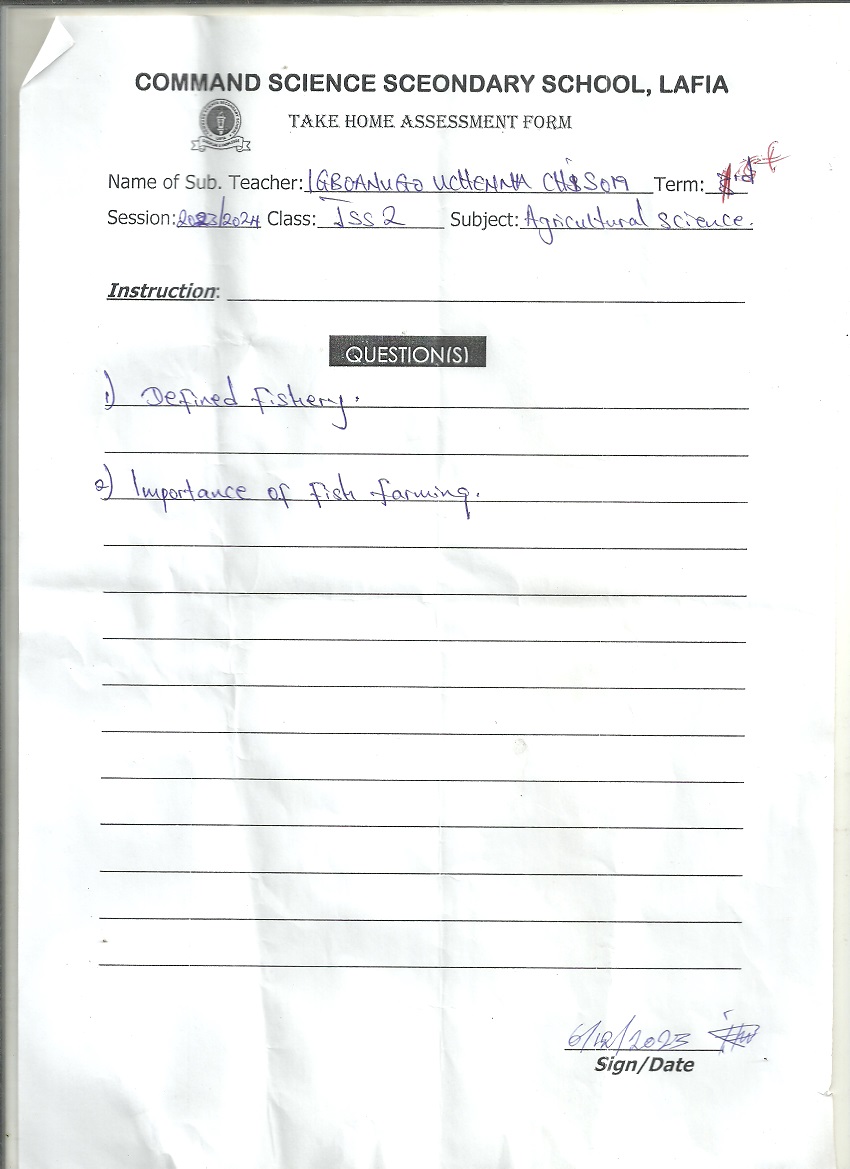 COMMAND SCIENCE SCEONDARY SCHOOL, LAFIA
TAKE HOME ASSESSMENT FORM
Name of Sub. Teacher: IGBOANUGO UCHENNA Term:
Session: 2023/2024 Class: JSS 2 Subject: Agricultural science.
Instruction:
QUESTION(S)
1) Defined fishery.
2) Importance of fish farming.
6/12/2023
Sign/Date